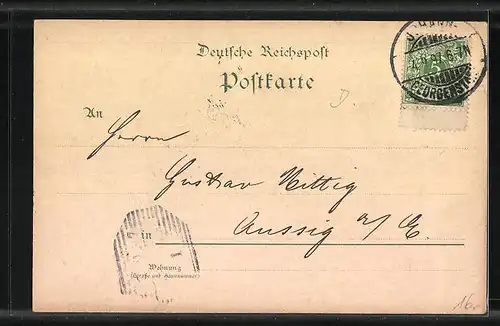 JOHANN-
GEORGENST
Deutsche Reichspost
Postkarte
An
Herrn
Gustav Wittig
in Aussig a/E.
Wohnung
(Straße und Hausnummer)
16.